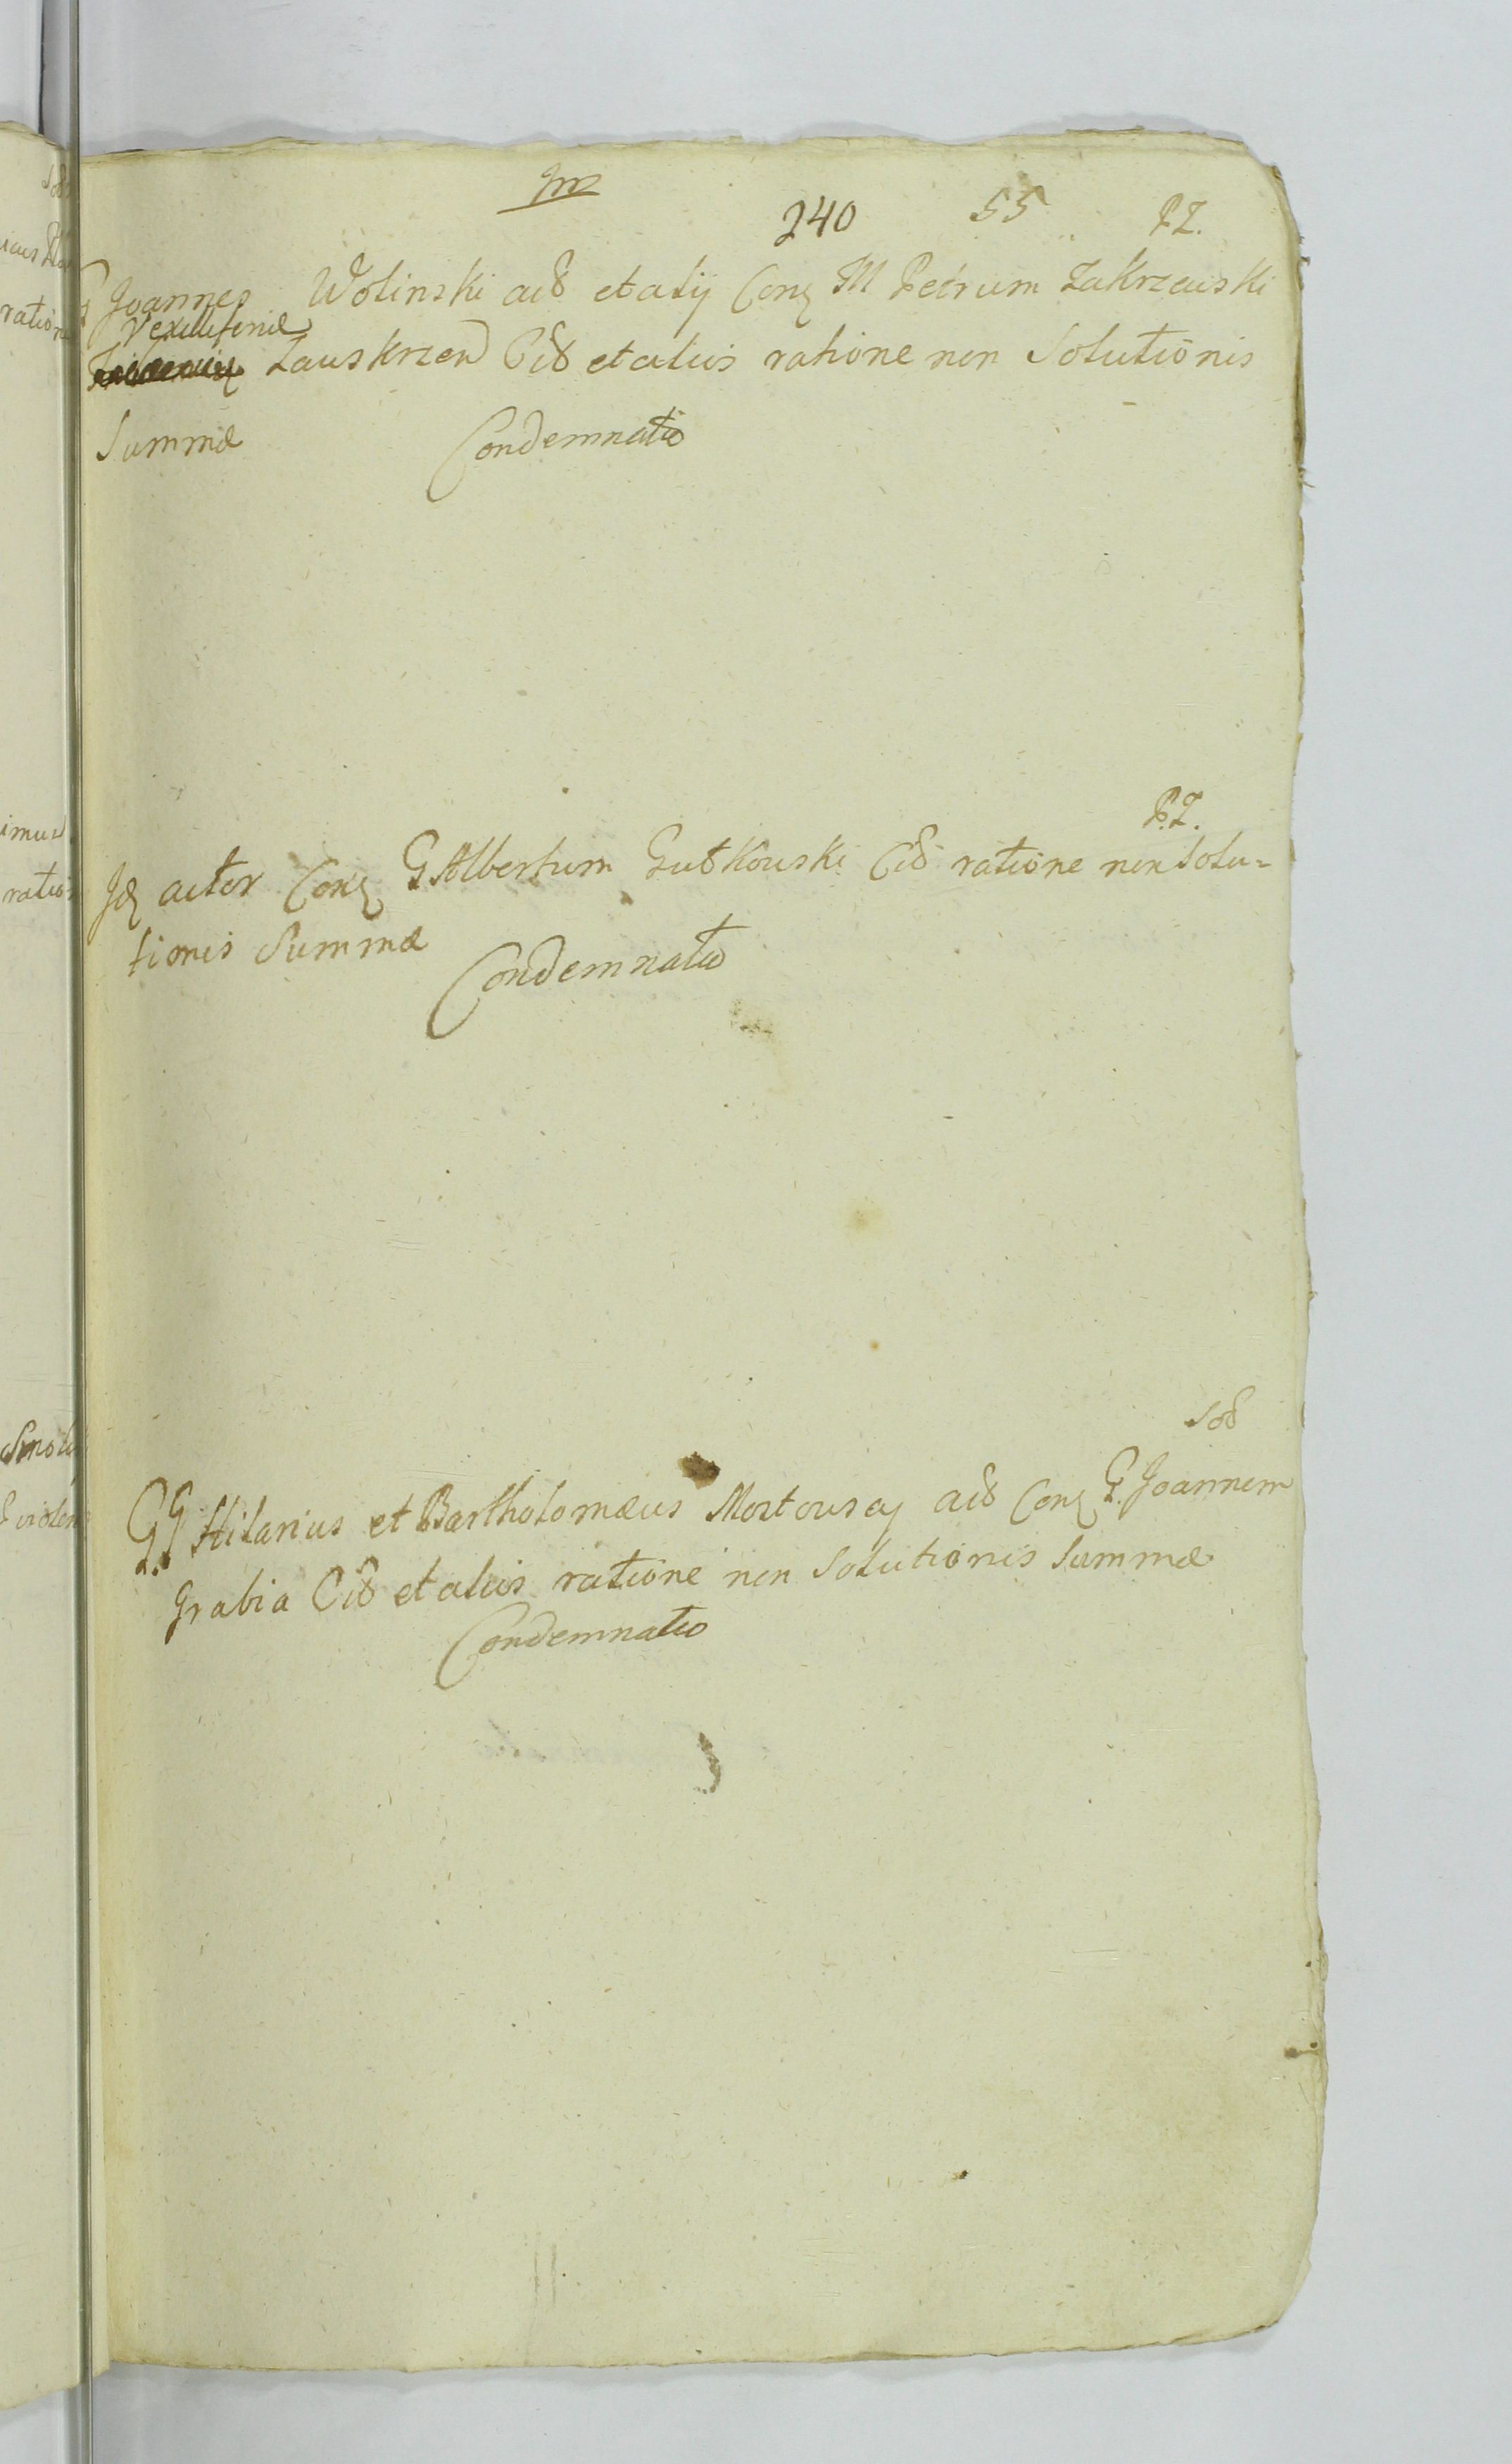 240 55 PZ.
G Joannes Wolinski aĉt et alij Conꝫ M Petrum Zakrzewski
Vexilliferidæ
Zauskrzen Cit et aliis ratione non Solutionis
Summæ Condemnatio
PZ.
Jdꝫ actor Conꝫ G Albertum Gutkouski Cit ratione non Solu=
tionis Summæ
Condemnatio
Sod
GG Hilarius et Bartholomæus Mortouscy act Conꝫ G. Joannem
Grabia Cit et aliis ratione non Solutionis Summæ
Condemnatio